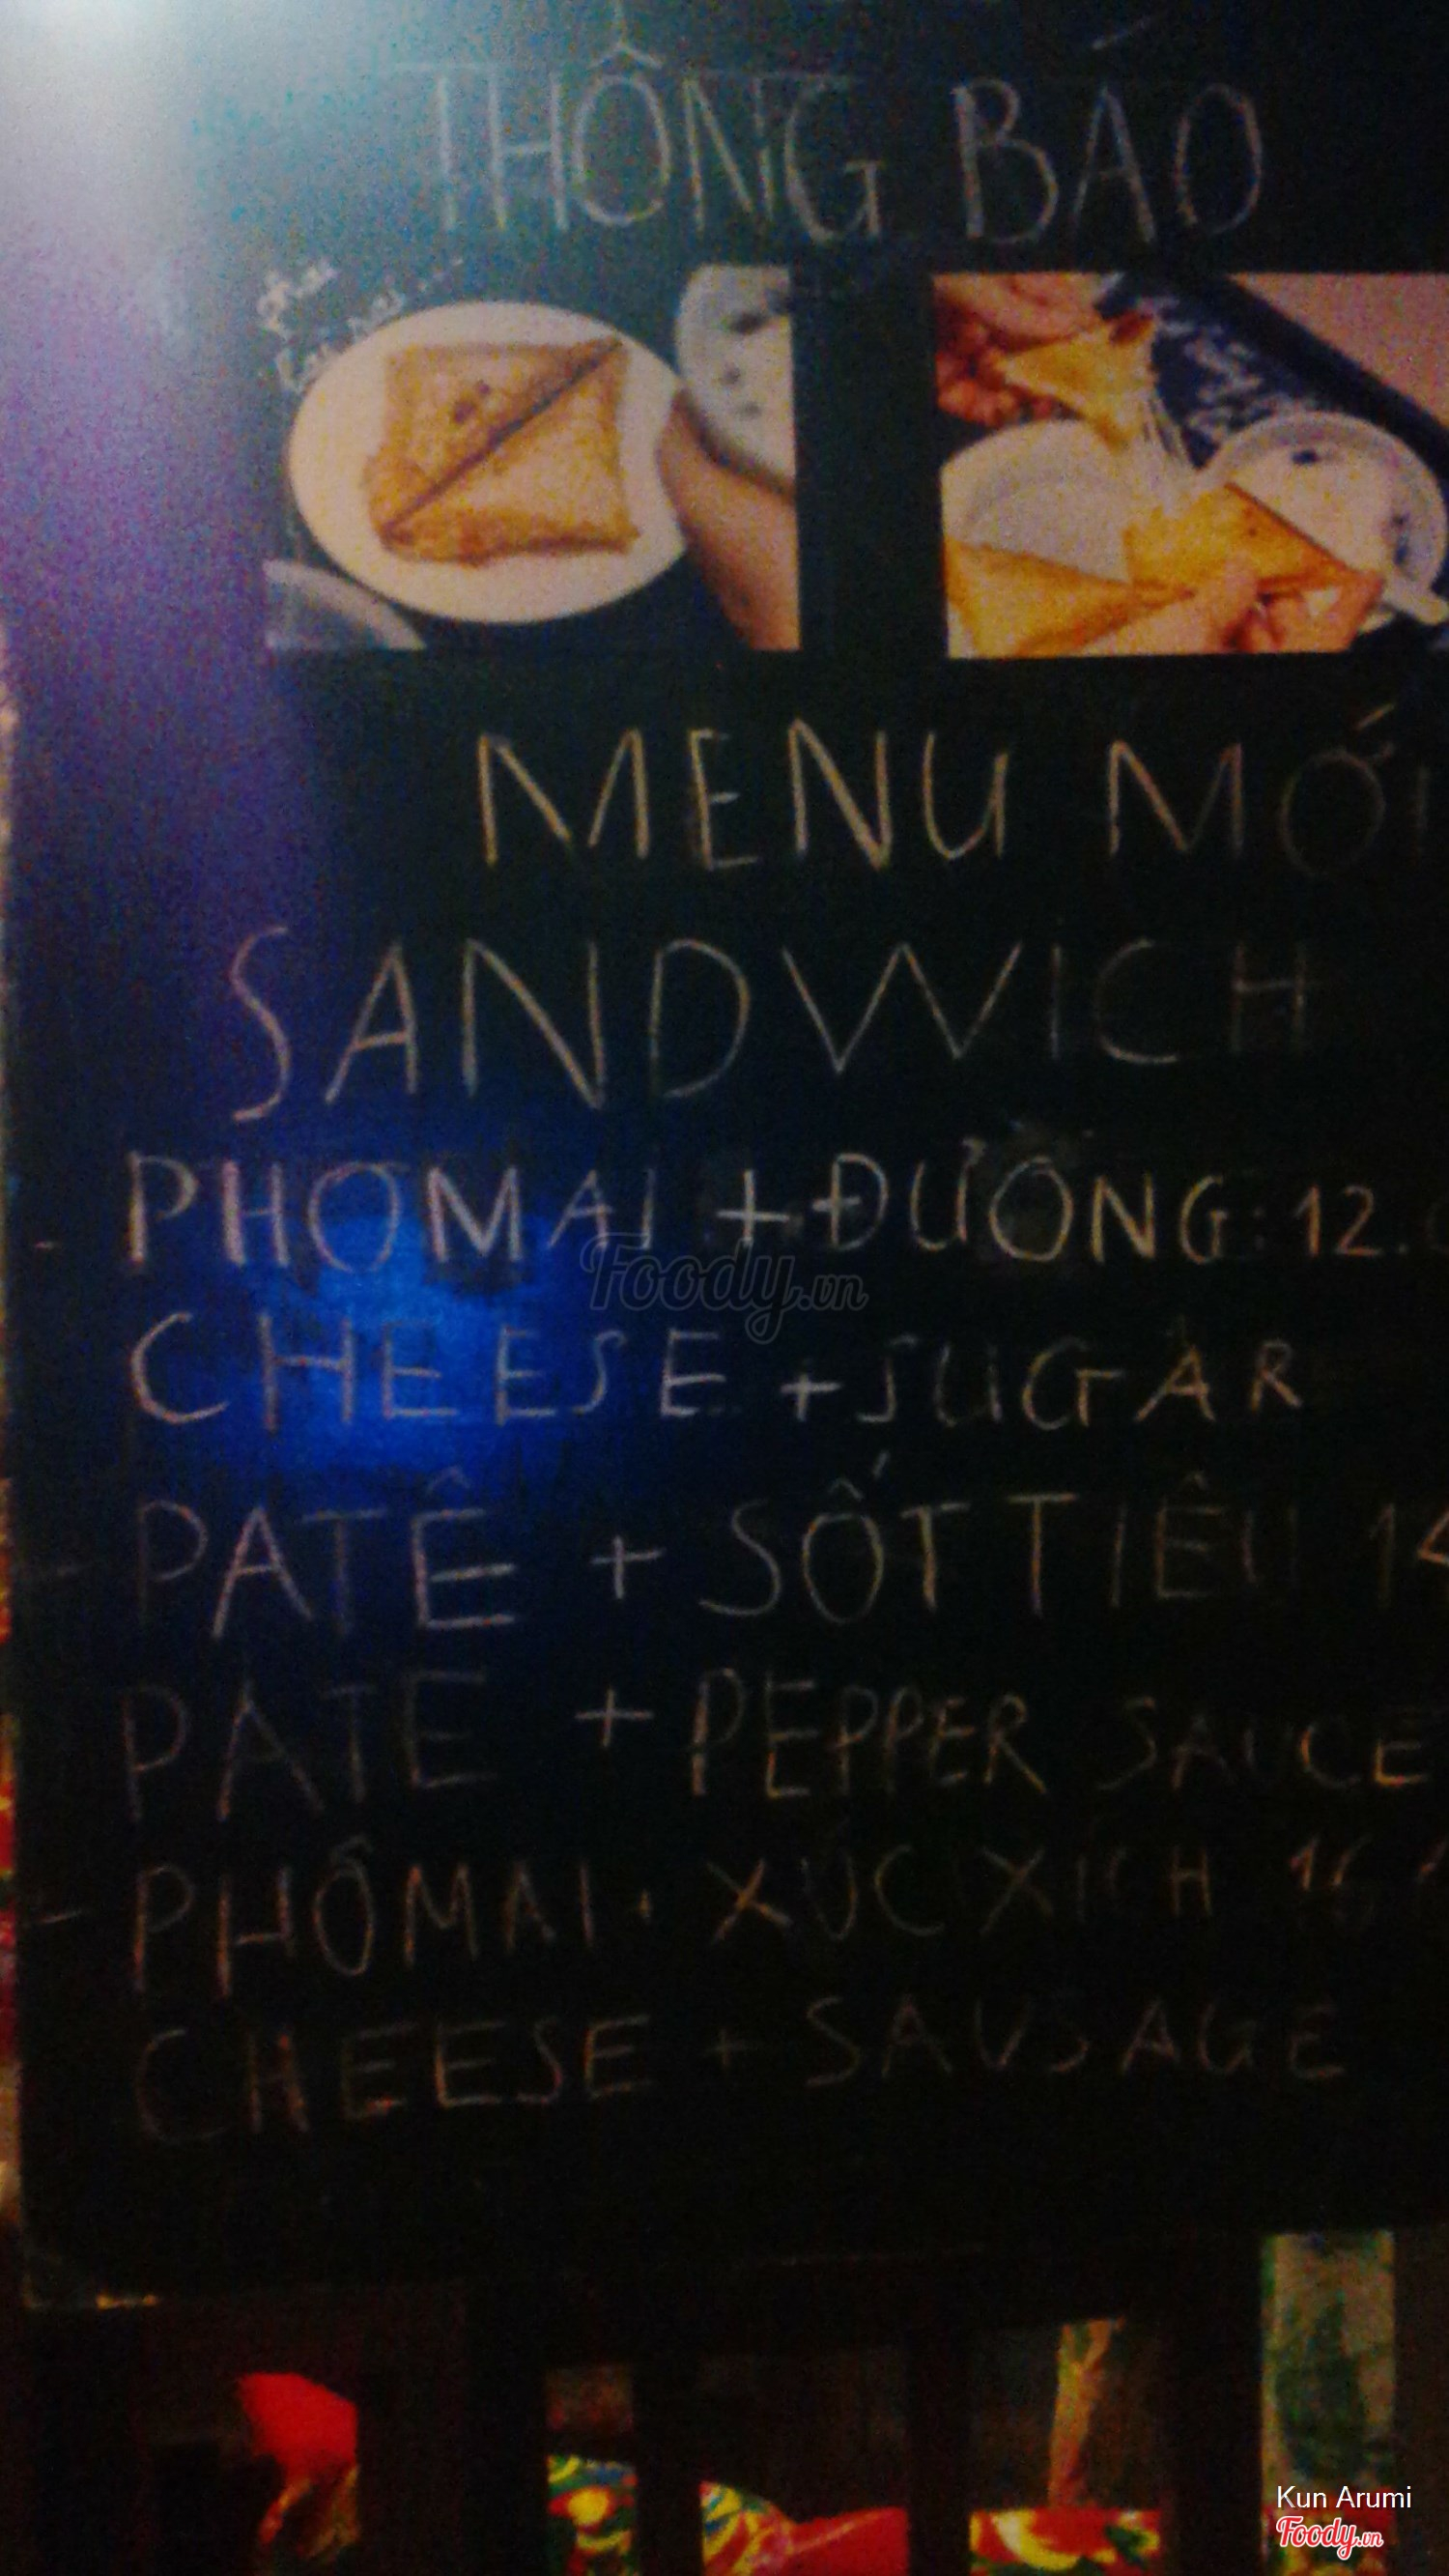 THÔNG BÁO
MENU MỚI
SANDWICH
- PHOMAI + ĐƯỜNG: 12.
CHEESE + SUGAR
- PATÊ + SỐT TIÊU 14
PATE + PEPPER SAUCE
- PHÔMAI + XÚC XÍCH 16
CHEESE + SAUSAGE
Foody.vn
Kun Arumi
Foody.vn